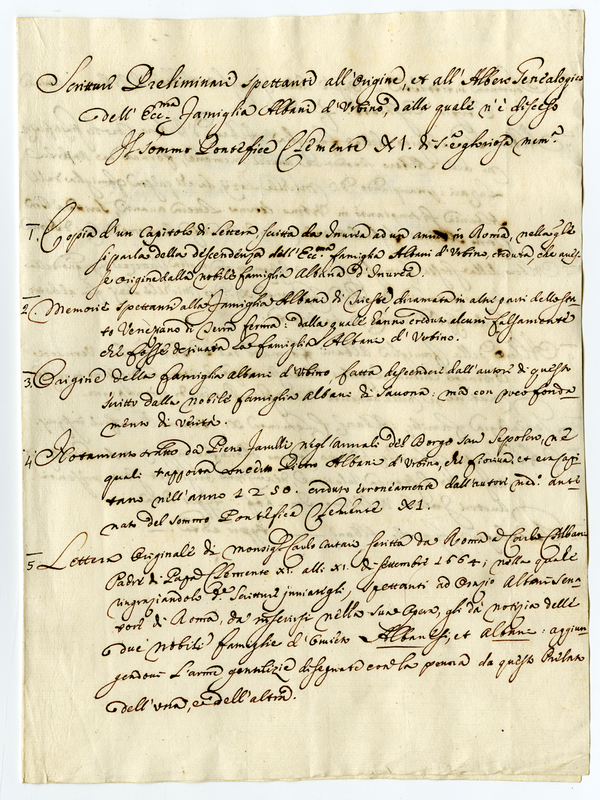 Scritture Preliminari spettanti all'Origine, et all'Albero Genealogico
dell'Ecc.ma Famiglia Albani d'Urbino, dalla quale n'è disceso
Il Sommo Pontefice Clemente XI. di S.e gloriosa mem.a
1. Copia d'un Capitolo di lettera scritta da ad un amico in Roma, nella q.le
si parla della descendenza dell'Ecc.ma famiglia Albani d'Urbino, creduta che aves-
se origine dalla nobile famiglia Albana d'
2. Memorie spettanti alla Famiglia Albani di diramata in altri parti dello Sta-
to Veneziano di Terra ferma: dalla quale hanno creduto alcuni falsamente
che fosse derivata la famiglia Albani d'Urbino.
3. Origine della famiglia Albani d'Urbino, fatta descendere dall'autore di questo
scritto dalla nobile famiglia Albani di Savona: ma con poco fonda
mento di verità.
4. Notamento tratto da negl'Annali del Borgo San Sepolcro, n e
quali rapporta Pietro Albani d'Urbino, che fioriva, et era Capi-
tano nell'anno 1250. creduto erroneamente dall'autore med.o ante
nato del Sommo Pontefice Clemente XI.
5. Lettera Originale di Monsig.r Carlo Cartari scritta da Roma a Carlo Albani
Padre di Papa Clemente XI. alli XI. di Settembre 1664, nella quale
ringraziandolo di scritture inviategli, spettanti ad Orazio Albani Sena
tore di Roma, da inserirsi nella sua Opera, gli dà notizia delle
due nobili famiglie d' Albanesi, et Albani: aggiun
gendovi l'arme gentilizie disegnate con la penna da questo Prelato
dell'una, e dell'altra.